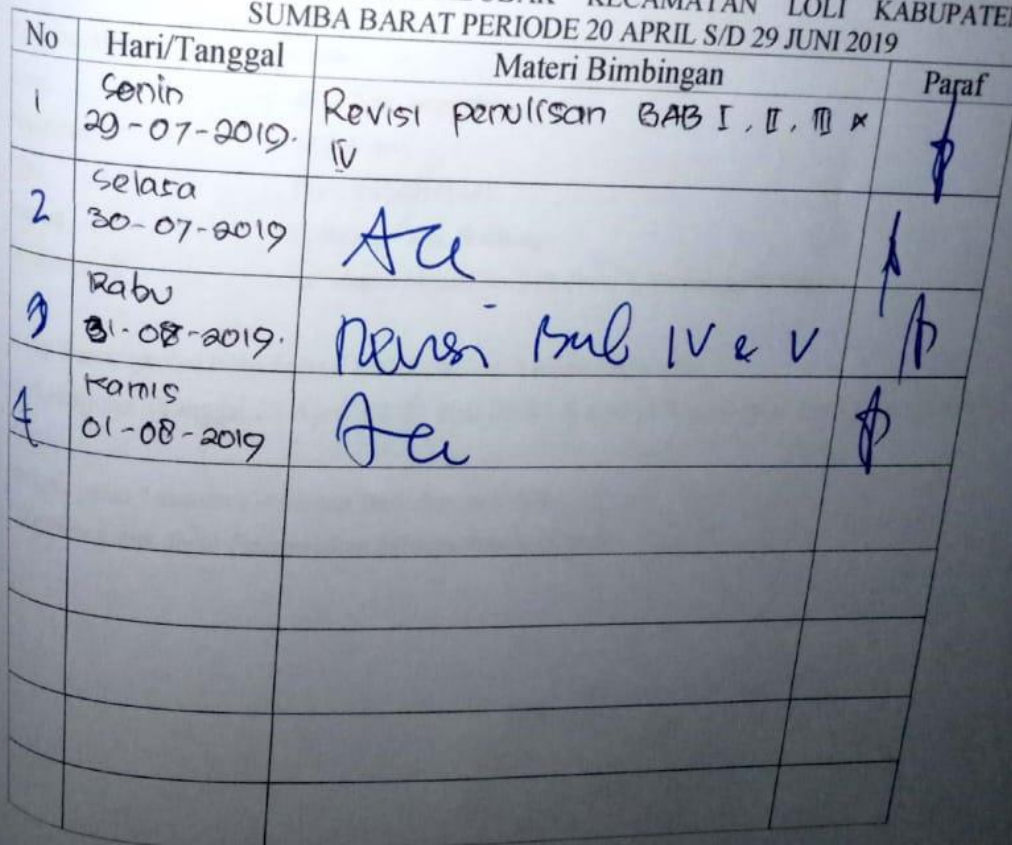 KECAMATAN LOLI KABUPATEN
SUMBA BARAT PERIODE 20 APRIL S/D 29 JUNI 2019
No Hari/Tanggal Materi Bimbingan Paraf
1 Senin Revisi penulisan BAB I, II, III &
29-07-2019. IV
2 Selasa
30-07-2019 Acc
3 Rabu
31-08-2019. Revisi Bab IV & V
4 Kamis
01-08-2019 Acc